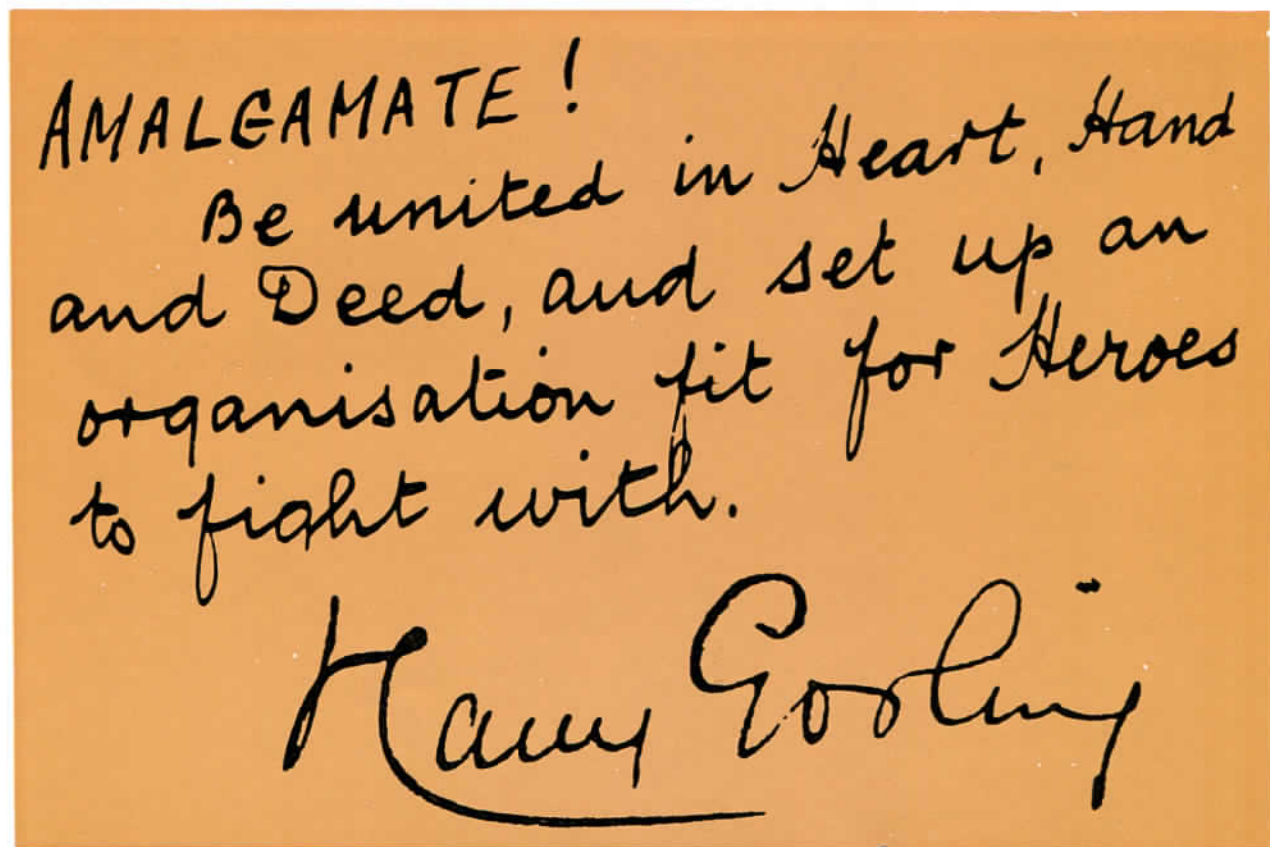 AMALGAMATE!
Be united in Heart, Hand
and Deed, and set up an
organisation fit for Heroes
to fight with.
Harry Gosling